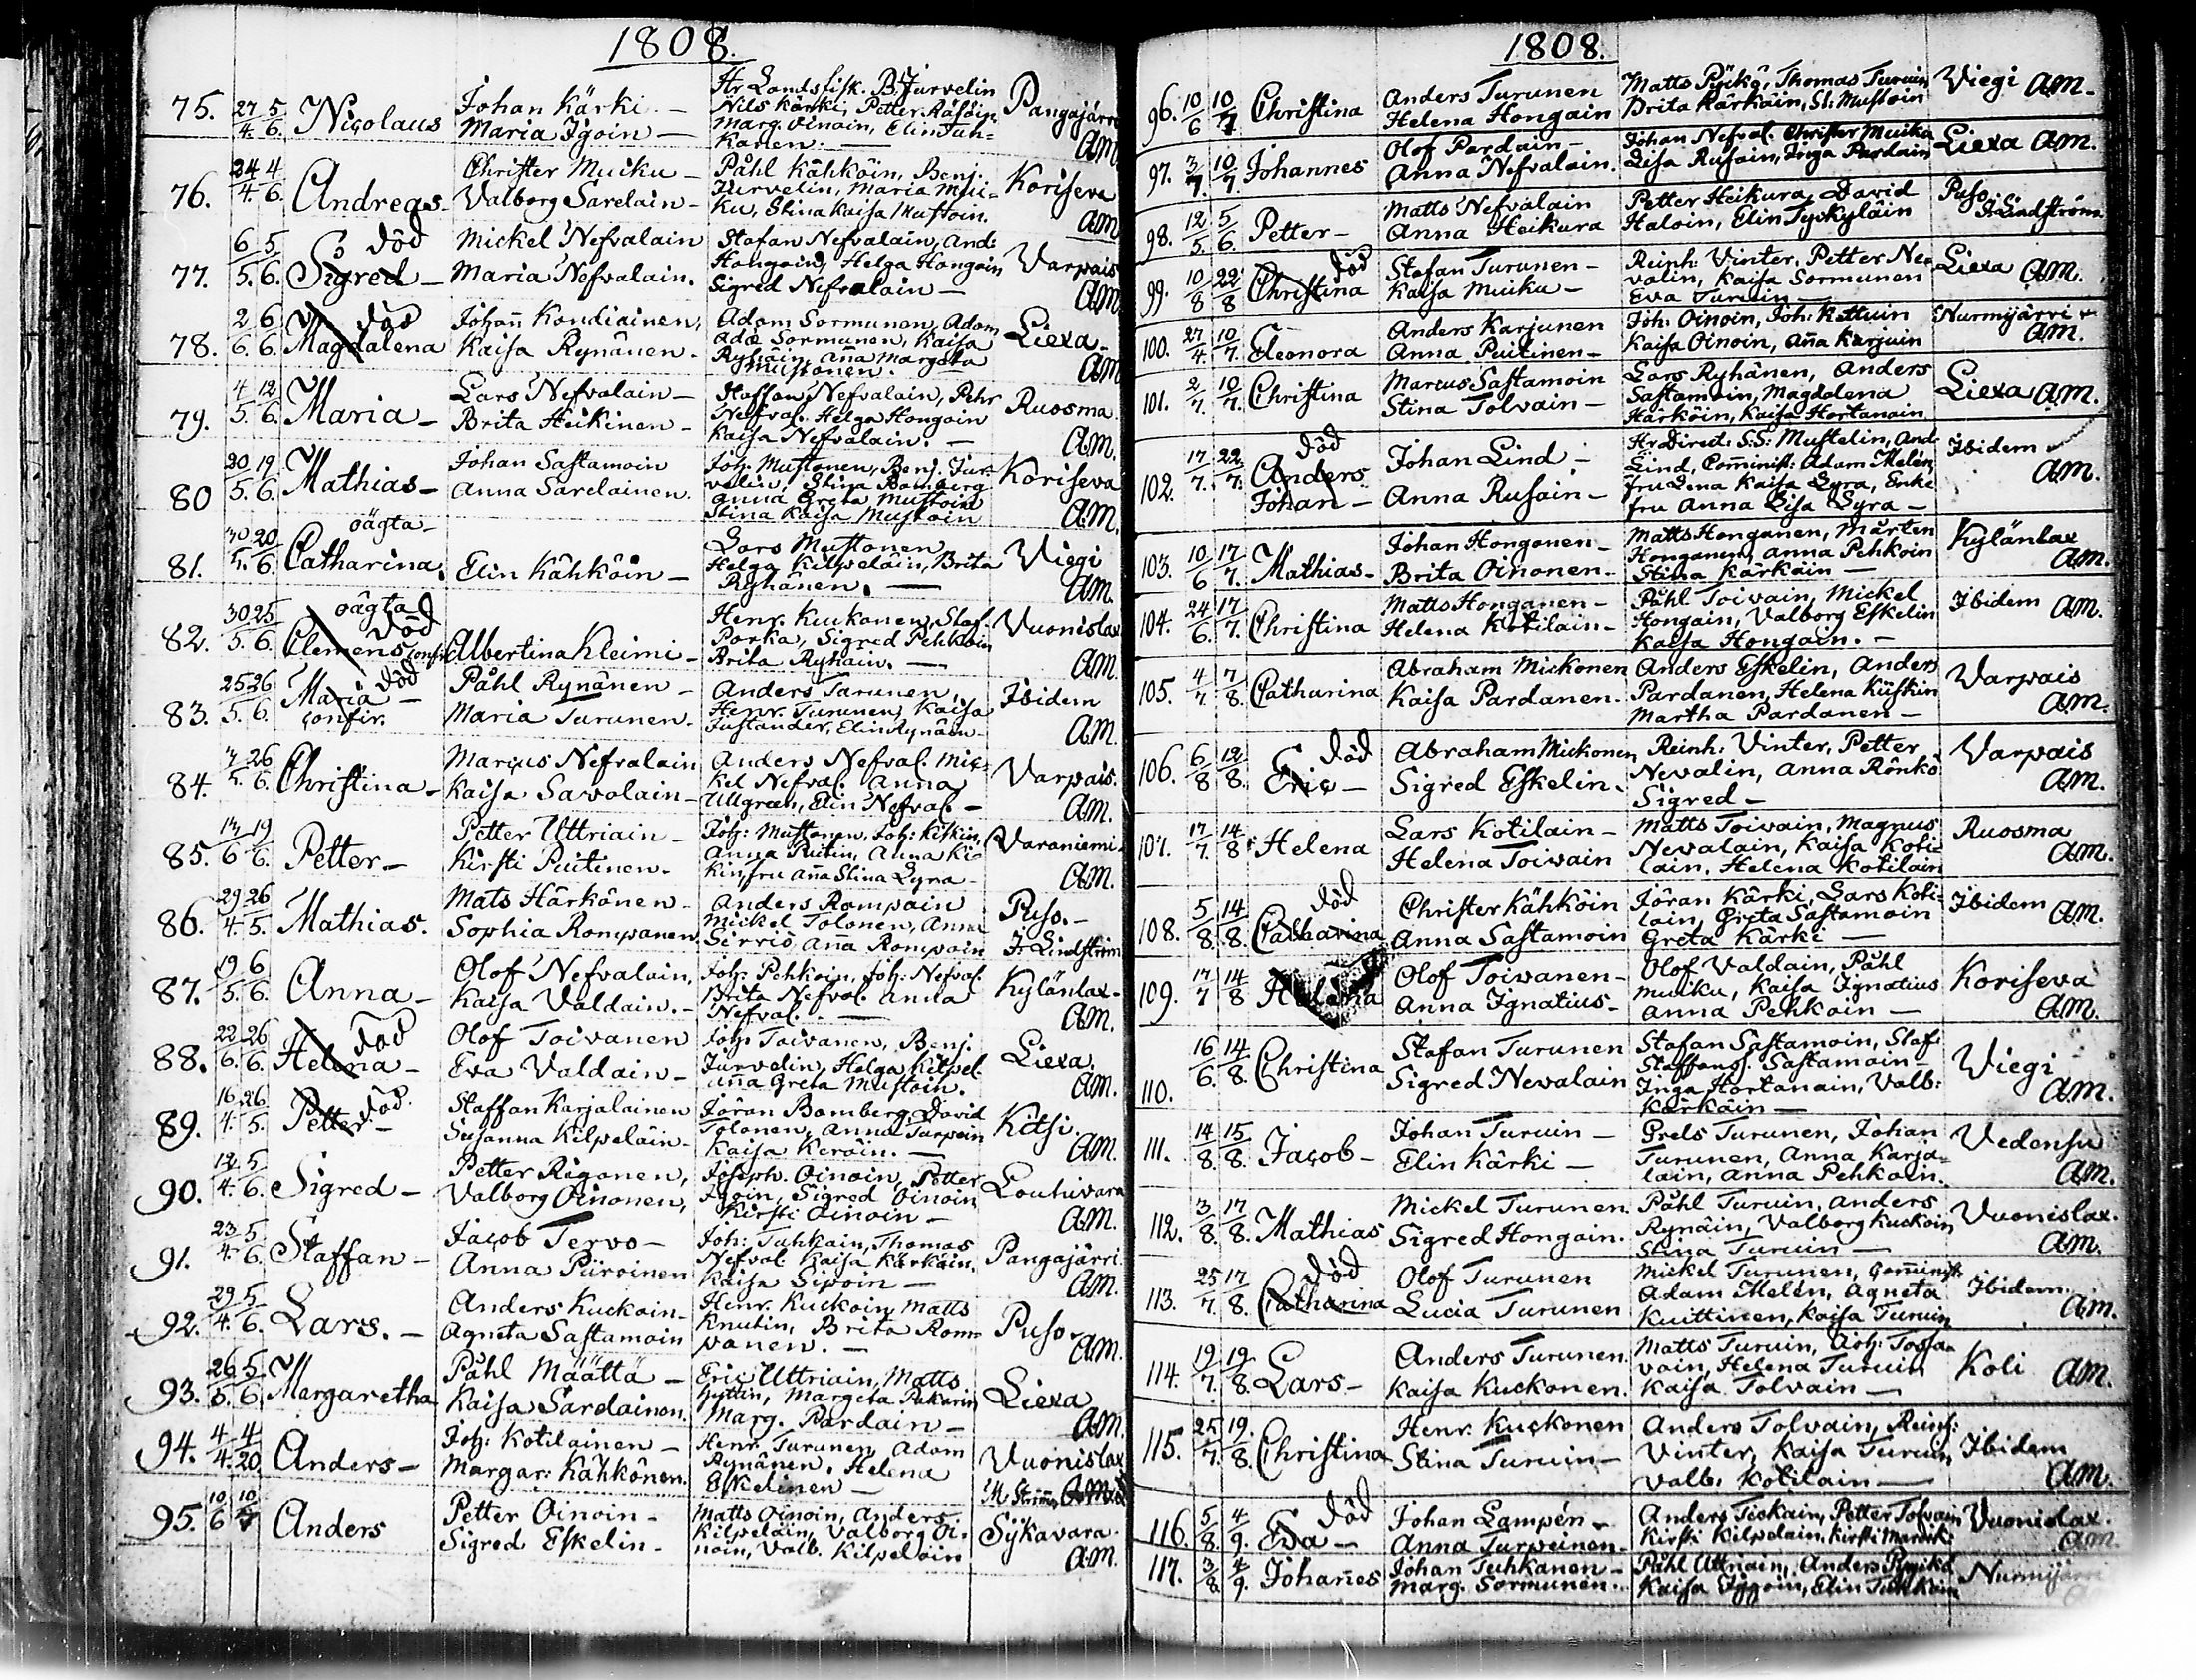 1808.
75. 27/4. 5/6. Nicolaus Johan Kärki – Maria Igoin – Hr Landsfisk. B. Jurvelin
Nils Kärki, Petter Räsöin,
Marg. Oinoin, Elin Tuh=
kanen. — Pangajärvi
AM
76. 24/4. 4/6. Andreas Christer Muiku – Valborg Sarelain – Påhl Kähköin, Benj.
Jurvelin, Maria Mui=
ku, Stina Kaisa Mustoin. Koriseva
AM
77. 6/5. 5/6. död Sigred – Mickel Nefvalain Maria Nefvalain. Stafan Nefvalain, And:
Hongoin, Helga Hongoin
Sigred Nefvalain – Varpais
AM
78. 2/6. 6/6. död Magdalena Johan Kondiainen, Kaisa Rynänen. Adam Sormunen, Adam
Ada: Sormunen, Kaisa
Ryhäin, Aña Margeta
Mustonen. Liexa –
AM
79. 4/5. 12/6. Maria – Lars Nefvalain – Brita Heikinen – Staffan Nefvalain, Pehr
Nefval. Helga Hongoin
Kaisa Nefvalain. – Ruosma
AM.
80 20/5. 19/6. Mathias – Johan Sastamoin Anna Sarelainen. Joh. Mustonen, Benj. Jur=
velin, Stina Bomberg
Anna Greta Mustoin
Stina Kaisa Mustoin Koriseva
AM.
81. 30/5. 20/6. oägta – Catharina. Elin Kähköin – Lars Mustonen
Helga Kilpeläin, Brita
Ryhänen. — Viegi
AM
82. 30/5. 25/6. oägta död Clemens confir. Albertina Kleimi – Henr. Kuckanen, Staf.
Porka, Sigred Pehkoin
Brita Ryhäin. — Vuonislax
AM.
83. 25/5. 26/6. död Maria – confir. Påhl Rynänen – Maria Turunen. Anders Turunen,
Henr. Turunen, Kaisa
Justander, Elin Rynäin – Ibidem
AM.
84. 7/5. 26/6. Christina – Marcus Nefvalain Kaisa Savolain – Anders Nefval. Mic=
kel Nefval. Anna
Ullgren, Elin Nefval – Varpais.
AM.
85. 13/6 19/6. Petter – Petter Uttriain – Kirsti Puitinen. Joh: Mustonen, Joh: Kiskin,
Anna Puitin, Anna Kis
kin, fru Aña Stina Lyra – Varaniemi.
AM.
86. 29/4. 26/5. Mathias. Mats Härkönen – Sophia Rompanen Anders Rompain
Mickel Tolonen, Anna
Sirviö, Aña Rompain Puso. –
Jr Lindström
87. 19/5. 6/6. Anna – Olof Nefvalain, Kaisa Valdain. – Joh: Pehkoin, Joh: Nefval
Brita Nefval. Anna
Nefval. — Kylänlax –
AM.
88. 22/6. 26/6. död Helena – Olof Toivanen Eva Valdain – Joh. Toivanen, Benj.
Jurvelin, Helga Kilpel.
Aña Greta Mustoin. Liexa.
AM.
89. 16/4. 26/5. död. Petter – Staffan Karjalainen Susanna Kilpeläin – Jöran Bomberg, David
Tolonen, Anna Turpein
Kaisa Keröin. — Kitsi.
AM.
90. 12/4. 5/6. Sigred – Petter Rigonen, Valborg Oinonen, Joseph. Oinoin, Petter
Igoin, Sigred Oinoin
Kirsti Oinoin – Louhivara
AM.
91. 23/4. 5/6. Staffan – Jacob Tervo – Anna Piiroinen Joh: Tuhkain, Thomas
Nefval. Kaisa Kärkäin.
Kaisa Sipoin – Pangajärvi.
AM.
92. 29/4. 5/6. Lars. – Anders Kuckoin – Agneta Sastamoin Henr. Kuckoin, Matts
Knutin, Brita Rom=
panen. – Puso.
AM.
93. 26/5. 5/6. Margaretha Påhl Määttä – Kaisa Sardainen. Eric Uttriain, Matts
Margeta Pakarin
Marg. Pardain – Liexa
AM.
94. 4/4. 4/20. Anders – Joh: Kotilainen – Margar: Kähkönen. Henr. Turunen, Adam
Rynänen, Helena
Eskelinen – Vuonislax
95. 10/6 10/7 Anders Petter Oinoin – Sigred Eskelin – Matts Oinoin, Anders
Kilpeläin, Valborg Oi=
noin, Valb. Kilpeläin Sykavara.
AM.
1808.
96. 10/6 10/7 Christina Anders Turunen Helena Hongain Matts Pyckö, Thomas Turuin
Brita Kärkäin, St: Mustoin Viegi AM –
97. 3/7. 10/7. Johannes Olof Pardain – Anna Nefvalain. Johan Nefval. Christer Muika
Lisa Rusain, Inga Pardain Liexa AM.
98. 12/5. 5/6. Petter – Matts Nefvalain Anna Heikura Petter Heikura, David
Haloin, Elin Tyckyläin Puso
Jr Lindström
99. 10/8 22/8 död Christina Stafan Turunen – Kaisa Muiku – Reinh: Vinter, Petter Ne=
valin, Kaisa Sormunen
Eva Turuin – Liexa AM.
100. 27/4 10/7. Eleonora Anders Karjunen Anna Puitinen – Joh: Oinoin, Joh: Kettuin
Kaisa Oinoin, Aña Karjuin Nurmijärvi
AM.
101. 2/7. 10/7. Christina Marcus Sastamoin Stina Tolvain – Lars Ryhänen, Anders
Sastamoin, Magdalena
Härköin, Kaisa Hortanain Liexa AM.
102. 17/7. 22/7. död Anders Johan – Johan Lind – Anna Rusain – Hr. Direct: S.S: Mustelin, And.
Lind, Com̃inist: Adam Melén
fru Lena Kaisa Lyra, Enke
fru Anna Lisa Lyra – Ibidem
AM.
103. 10/6 17/7. Mathias – Johan Honganen – Brita Oinonen – Matts Honganen, Mårten
Honganen, Anna Pehkoin
Stina Kärkäin – Kylänlax
AM.
104. 24/6. 17/7. Christina Matts Honganen – Helena Kotilain – Påhl Toivain, Mickel
Hongain, Valborg Eskelin
Kaisa Hongain. – Ibidem AM.
105. 4/7 7/8. Catharina Abraham Mickonen Kaisa Pardanen. Anders Eskelin, Anders
Pardanen, Helena Kiiskin
Martha Pardanen – Varpais
AM.
106. 6/8 12/8. död Eric – Abraham Mickonen Sigred Eskelin. Reinh: Vinter, Petter
Nevalin, Anna Rönkö
Sigred – Varpais
AM.
107. 17/7. 14/8. Helena Lars Kotilain – Helena Toivain Matts Toivain, Magnus
Nevalain, Kaisa Koti=
lain, Helena Kotilain Ruosma
AM.
108. 5/8. 14/8. död Catharina Christer Kähköin Anna Sastamoin Jöran Kärki, Lars Koti=
lain, Greta Sastamoin
Greta Kärki — Ibidem AM.
109. 17/7 14/8 Helena Olof Toivanen – Anna Ignatius – Olof Valdain, Påhl
Muiku, Kaisa Ignatius
Anna Pehkoin — Koriseva
AM.
110. 16/6. 14/8. Christina Stafan Turunen Sigred Nevalain Stafan Sastamoin, Staf.
Staffans. Sastamoin –
Inga Hortanain, Valb:
Kärkäin — Viegi
AM.
111. 14/8. 15/8. Jacob – Johan Turuin – Elin Kärki – Grels Turunen, Johan
Turunen, Anna Karja=
lain, Anna Pehkoin. Vedensu
AM.
112. 3/8. 17/8. Mathias Mickel Turunen. Sigred Hongain. Påhl Turuin, Anders
Rynäin, Valborg Kuckoin
Stina Turuin — Vuonislax.
AM.
113. 25/7. 17/8. död Catharina Olof Turunen Lucia Turunen Mickel Turunen, Com̃inist:
Adam Melén, Agneta
Kuittinen, Kaisa Turuin Ibidem.
AM.
114. 19/7. 19/8. Lars – Anders Turunen. Kaisa Kuckonen. Matts Turuin, Joh: Tossa=
vain, Helena Turuin
Kaisa Tolvain — Koli AM.
115. 25/7. 19/8. Christina Henr. Kuckonen Stina Turuin – Anders Tolvain, Reinh:
Vinter, Kaisa Turuin
Valb. Kotilain — Ibidem
AM.
116. 5/8. 4/9. död Eva – Johan Lampén – Anna Turpeinen – Anders Tickain, Petter Tolvain
Kirsti Kilpelain, Kirsti Vuonislax.
AM.
117. 3/8. 4/9. Johañes Johan Tuhkanen – Marg. Sormunen – Påhl Uttriain, Anders
Kaisa Iggoin, Elin Tuhkain Nurmijärvi